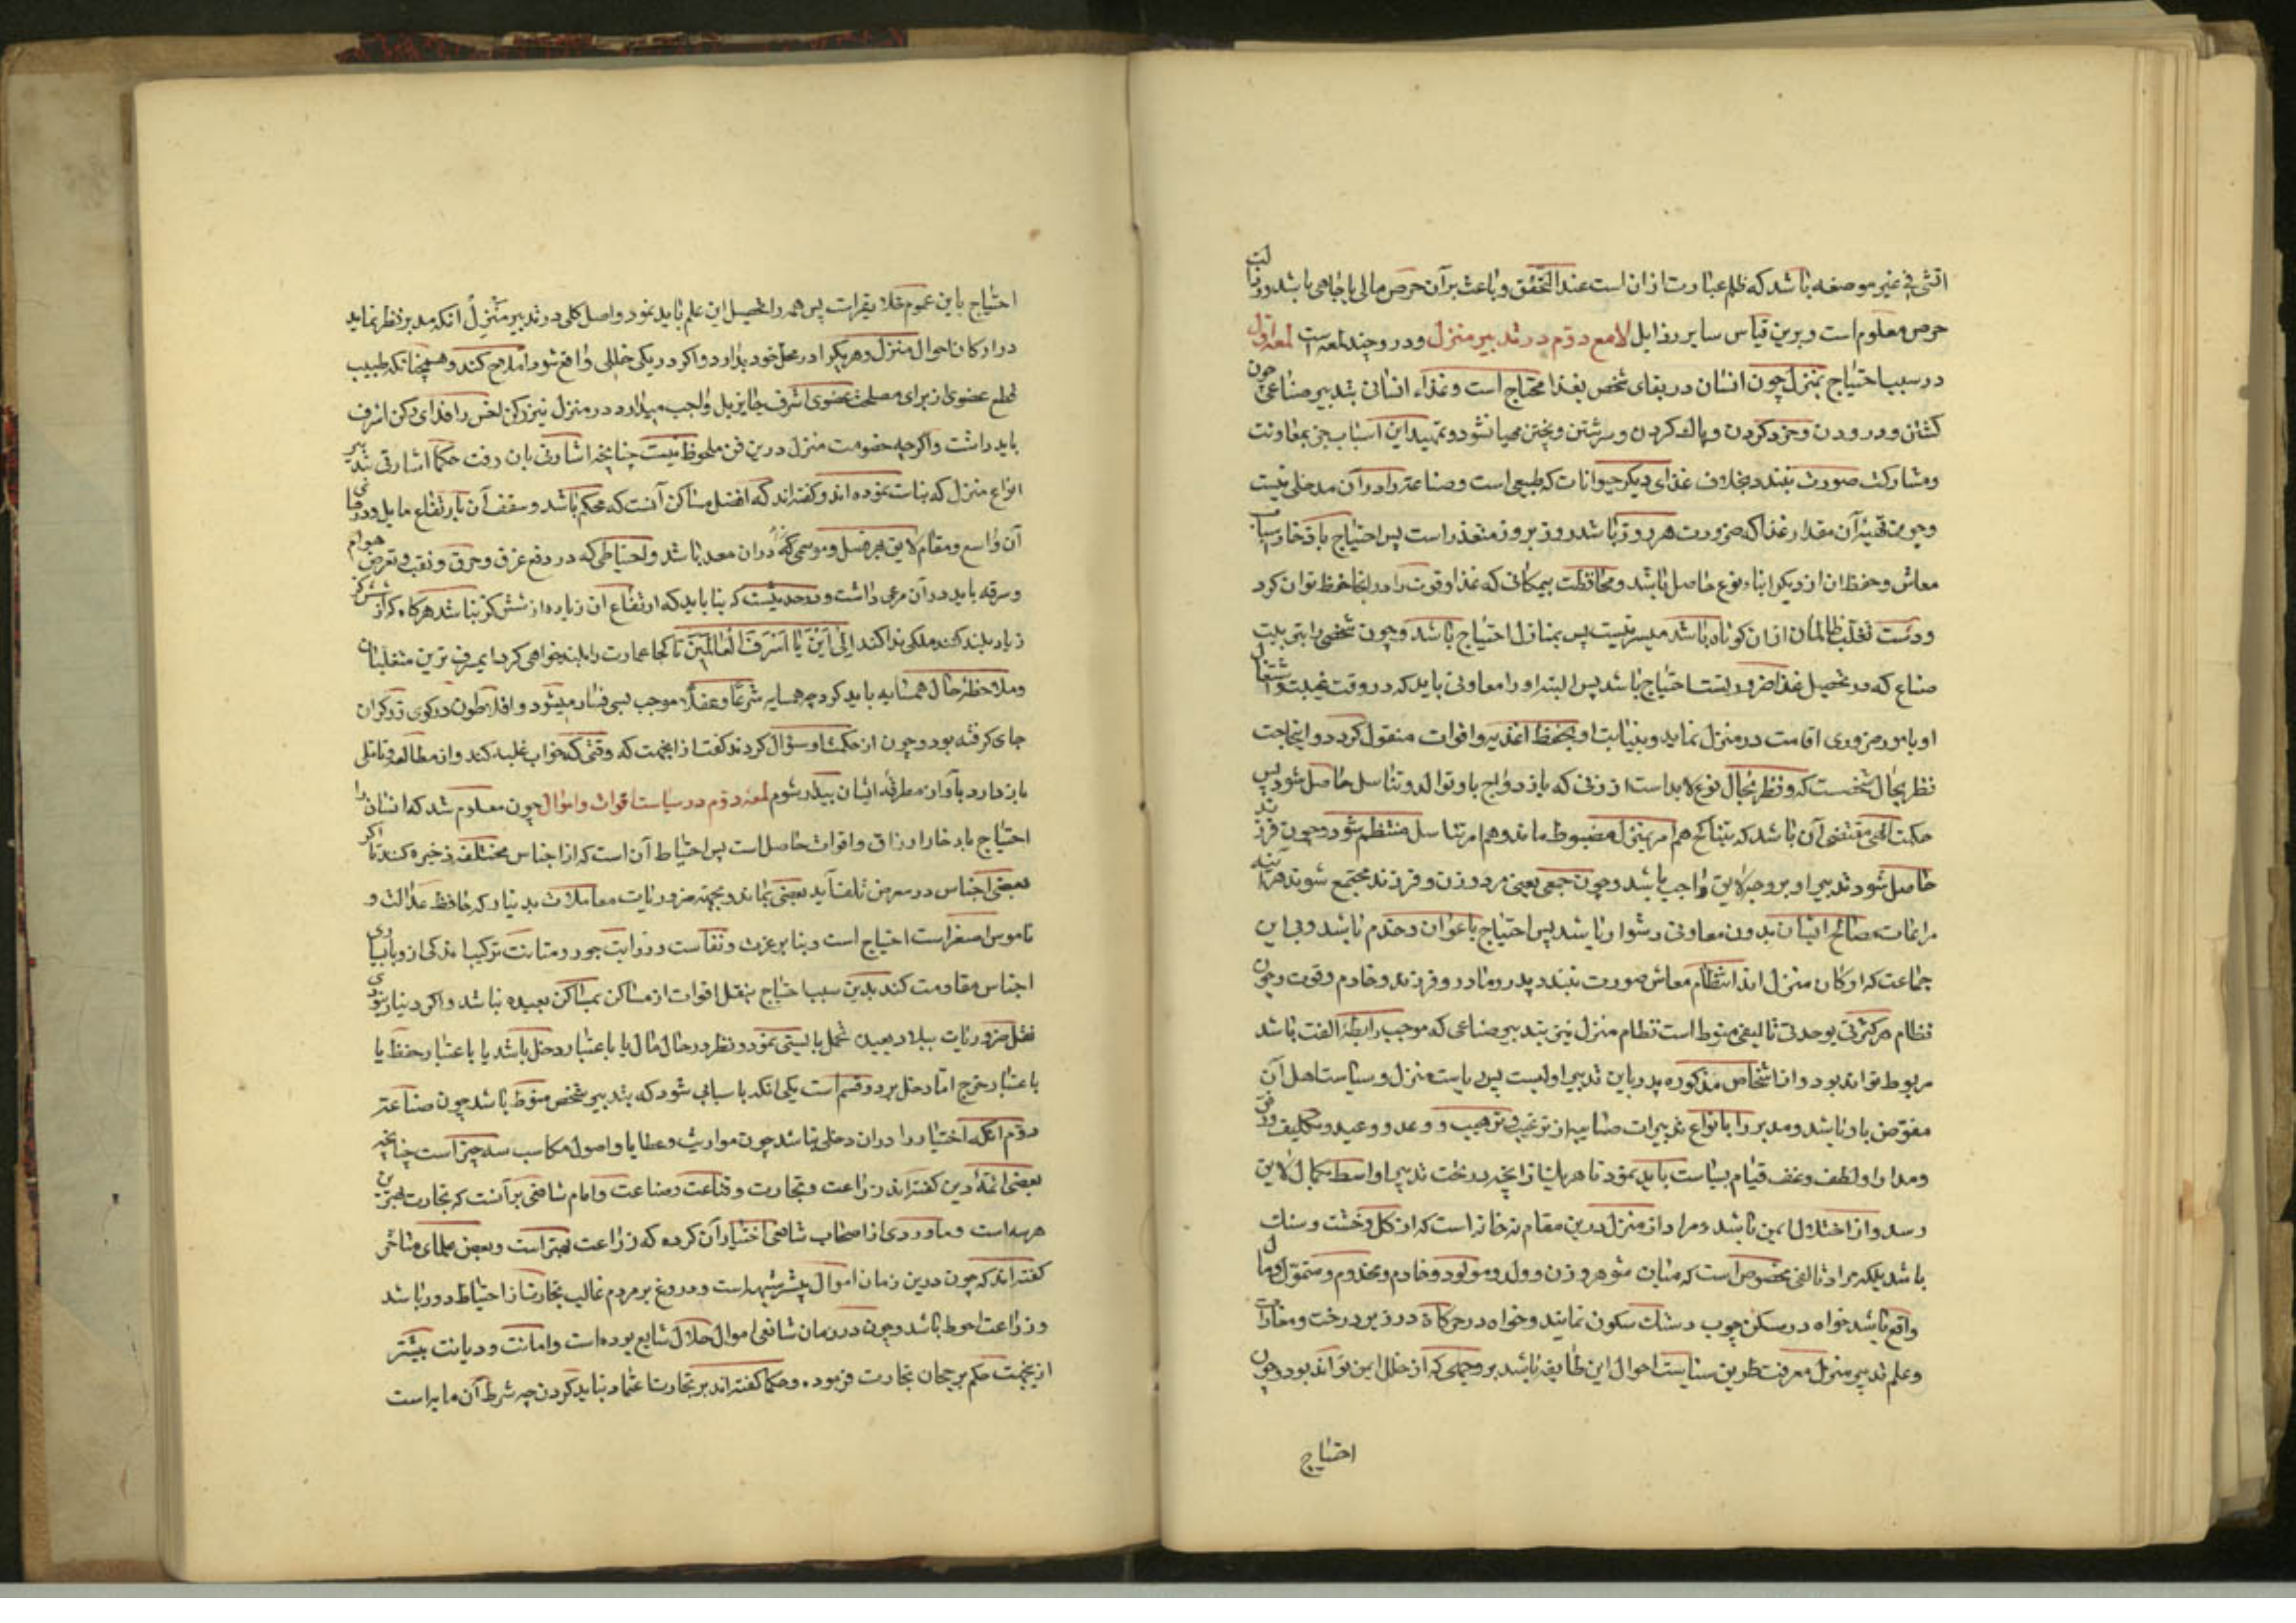 الشئ فی غیر موضعه باشد که ظلم عبارت از ان است عند التحقق و باعث بر آن حرص مالی یا جاهی باشد و رذالت
حرص معلوم است و برین قیاس سایر رذایل لامع دوم در تدبیر منزل و درو چند لمعه است لمعه اول
در سبب احتیاج بمنزل چون انسان در بقای شخص بغذا محتاج است و غذاء انسانی بتدبیر صناعی چون
کشتن و درودن و خرد کردن و پاک کردن و سرشتن و پختن مهیا نشود و تمهید این اسباب جز بمعاونت
و مشارکت صورت نبندد بخلاف غذای دیگر حیوانات که طبیعی است و صناعت را در آن مدخلی نیست
و چون تهیۀ آن مقدار غذا که ضرورت هر روز باشد روز بروز متعذر است پس احتیاج بادخار اسباب
معاش و حفظ ان از دیگر ابناء نوع حاصل باشد و محافظت بیمکانی که غذا و قوت را در انجا حفظ توان کرد
و دست تغلب ظالمان از ان کوتاه باشد میسر نیست پس بمنازل احتیاج باشد و چون شخصی را بترتیب
صناع که در تحصیل غذا ضروریست احتیاج باشد پس البته او را معاونی باید که در وقت غیبت و اشتغال
او بامور ضروری اقامت در منزل نماید و بنیابت او بحفظ اغذیه و اقوات منقول گردد و اینحاجت
نظر بحال شخصست که و نظر بحال نوع لابد است از زنی که بازدواج با او توالد و تناسل حاصل شود پس
حکمت الهی مقتضی آن باشد که بتناکح هم امر منزل مضبوط ماند و هم امر تناسل منتظم شود و چون فرزند
حاصل شود تدبیر او بر وجه لایق واجب باشد و چون جمعی یعنی مرد و زن و فرزند مجتمع شوند هر آینه
مراعات مصالح ایشان بدون معاونی دشوار باشد پس احتیاج باعوان و خدم باشد و بی این
جماعت که ارکان منزل اند انتظام معاش صورت نبندد پدر و مادر و فرزند و خادم و قوت و چون
نظام هر کثرتی بوحدتی تالیفی منوط است نظام منزل نیز بتدبیر صناعی که موجب رابطۀ الفت باشد
مربوط تواند بود و از اشخاص مذکوره پدر باین تدبیر اولیست پس ریاست منزل و سیاست اهل آن
مفوض باو باشد و مدبر را بانواع تدبیرات صناعیه از ترغیب و ترهیب و وعد و وعید و تکلیف و رفق
و مدارا و لطف و عنف قیام بسیاست باید نمود تا هر یک از ایشان در تحت تدبیر او بکمال لایق
رسد و از اختلال ایمن باشد و مراد از منزل درین مقام نه خانه است که از گل و خشت و سنک
باشد بلکه مراد تالفی مخصوص است که میان شوهر و زن و ولد و مولود و خادم و مخدوم و متمول و مال
واقع باشد خواه در مسکن چوب و سنک سکون نمایند و خواه در خرگاه در زیر درخت و مغارات
و علم تدبیر منزل معرفت طریق سیاست احوال این طایفه باشد بر وجهی که از خلل ایمن تواند بود و چون
احتیاج
احتیاج باین عموم خلایق راست پس همه را تحصیل این علم باید نمود و اصل کلی در تدبیر منزل آنکه مدبر نظر نماید
در ارکان احوال منزل و هر یک را در محل خود بدارد و اگر در یکی خللی واقع شود اصلاح کند و همچنانکه طبیب
قطع عضوی از برای مصلحت عضوی اشرف جایز بل واجب میدارد در منزل نیز رکن اخس را فدای رکن اشرف
باید داشت و اگر چه خصوصیت منزل درین فن ملحوظ نیست چنانچه اشارتی بان رفت حکما اشارتی بتدبیر
انواع منزل که بنات نموده اند و گفته اند که افضل مساکن آنست که محکم باشد و سقف آن بارتفاع مایل و درهای
آن واسع و مقام لایق هر فصل و موسمی که در ان معد باشد و احتیاطی که در دفع غرق و حرق و نقب و تعرض هوام
و سرقه باید در آن مرعی داشت و در حدیثست که بنا باید که ارتفاع ان زیاده از شش کز نباشد هرگاه که از شش کز
زیاد بلند کنند ملکی ندا کند الی این یا اسرف العالمین تا کجا عمارت را بلند خواهی کرد ایمسرف ترین متغلبان
و ملاحظۀ حال همسایه باید کرد چه همسایه شرعا و عقلا موجب بسی فساد میشود و افلاطون در کوی زرگران
جای گرفته بود و چون از حکمت او سؤال کردند گفت از انجهت که وقتی که خواب غلبه کند و از مطالعه و تامل
باز دارد بآواز مطرقۀ ایشان بیدار شوم لمعۀ دوم در سیاست اقوات و اموال چون معلوم شد که انسان را
احتیاج بادخار ارزاق و اقوات حاصل است پس احتیاط آن است که از اجناس مختلف ذخیره کند تا اگر
بعضی اجناس در معرض تلف آید بعضی بماند و بجهة ضروریات معاملات بدینار که حافظ عدالت و
ناموس اصغر است احتیاج است و بنا بر عزت و نفاست و رزانت جوهر و متانت ترکیب اندکی از و با بسیاری
اجناس مقاومت کند بدین سبب احتیاج بنقل اقوات از مساکن بمساکن بعیده نباشد و اگر دینار نبودی
نقل ضروریات ببلاد بعیده تحمل بایستی نمود و نظر در حال مال یا باعتبار دخل باشد یا باعتبار حفظ یا
باعتبار خرج اما دخل بر دو قسم است یکی انکه باسبابی شود که بتدبیر شخص منوط باشد چون صناعت
دوم انکه اختیار را در ان دخلی نباشد چون مواریث و عطایا و اصول مکاسب سه چیز است چنانچه
بعضی ائمۀ دین گفته اند زراعت و تجارت و قناعت و صناعت و امام شافعی بر آنست که تجارت بهترین
هر سه است و ماوردی از اصحاب شافعی اختیار آن کرده که زراعت بهتر است و بعض علمای متاخر
گفته اند که چون درین زمان اموال بیشتر شبهه است و دروغ بر مردم غالب تجارت از احتیاط دور باشد
و زراعت احوط باشد و چون در زمان شافعی اموال حلال شایع بوده است و امانت و دیانت بیشتر
از ینجهت حکم برجحان تجارت فرمود. و حکما گفته اند بر تجارت اعتماد نباید کردن چه شرط آن مایه است